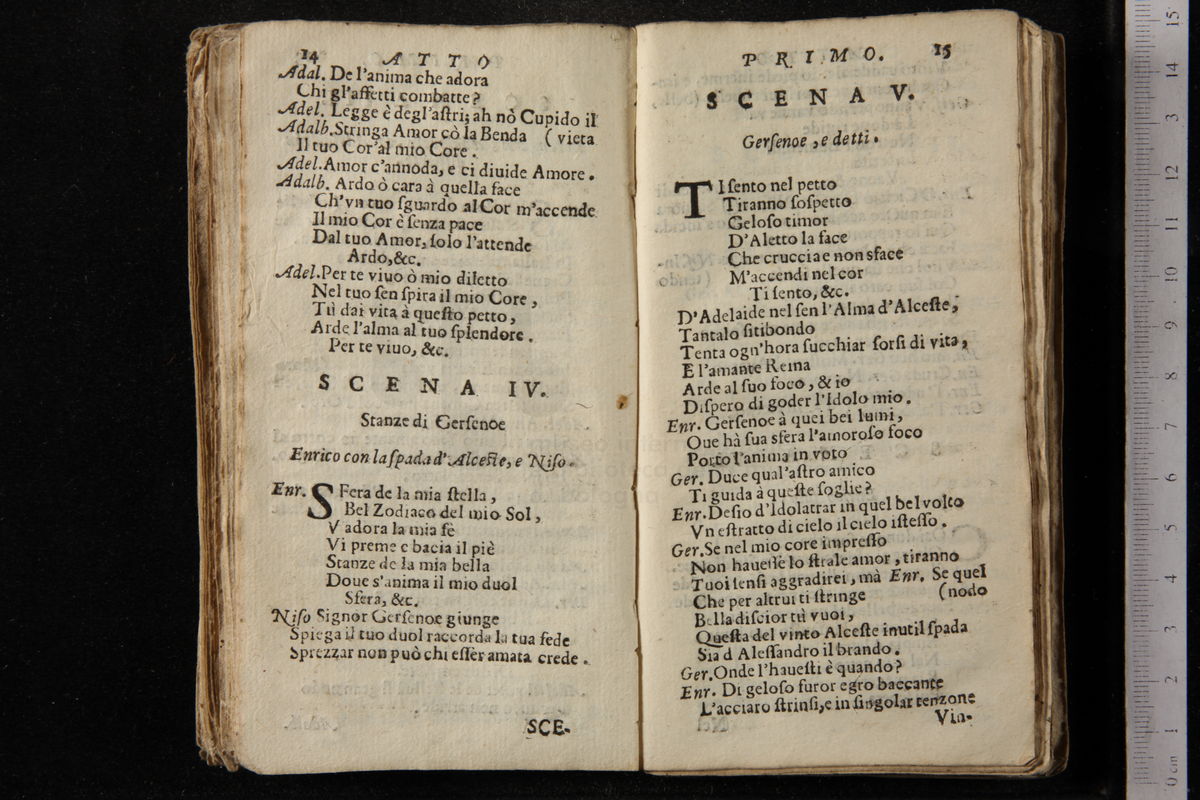 14 ATTO
Adal. De l'anima che adora
Chi gl'affetti combatte?
Adel. Legge è degl'aſtri; ah nò Cupido il
Adalb. Stringa Amor cò la Benda ( vieta
Il tuo Cor'al mio Core.
Adel. Amor c'annoda, e ci diuide Amore.
Adalb. Ardo ò cara à quella face
Ch'vn tuo ſguardo al Cor m'accende
Il mio Cor è ſenza pace
Dal tuo Amor, ſolo l'attende
Ardo, &c.
Adel. Per te viuo ò mio diletto
Nel tuo ſen ſpira il mio Core,
Tù dai vita à queſto petto,
Arde l'alma al tuo ſplendore.
Per te viuo, &c.
SCENA IV.
Stanze di Gerſenoe
Enrico con la ſpada d'Alceſte, e Niſo.
Enr. SFera de la mia ſtella,
Bel Zodiaco del mio Sol,
V adora la mia fè
Vi preme e bacia il piè
Stanze de la mia bella
Doue s'anima il mio duol
Sfera, &c.
Niſo Signor Gerſenoe giunge
Spiega il tuo duol raccorda la tua fede
Sprezzar non può chi eſſer amata crede.
SCE-
PRIMO. 15
SCENA V.
Gerſenoe, e detti.
TI ſento nel petto
Tiranno ſoſpetto
Geloſo timor
D'Aletto la face
Che cruccia e non sface
M'accendi nel cor
Ti ſento, &c.
D'Adelaide nel ſen l'Alma d'Alceſte,
Tantalo ſitibondo
Tenta ogn'hora ſucchiar ſorſi di vita,
E l'amante Reina
Arde al ſuo foco, & io
Diſpero di goder l'Idolo mio.
Enr. Gerſenoe à quei bei lumi,
Oue hà ſua sfera l'amoroſo foco
Porto l'anima in voto
Ger. Duce qual'aſtro amico
Ti guida à queſte ſoglie?
Enr. Deſio d'Idolatrar in quel bel volto
Vn eſtratto di cielo il cielo iſteſſo.
Ger. Se nel mio core impreſſo
Non haueſſe lo ſtrale amor, tiranno
Tuoi ſenſi aggradirei, mà Enr. Se quel
Che per altrui ti ſtringe (nodo
Bella diſcior tù vuoi,
Queſta del vinto Alceſte inutil ſpada
Sia d Aleſſandro il brando.
Ger. Onde l'haueſti è quando?
Enr. Di geloſo furor egro baccante
L'acciaro ſtrinſi, e in ſingolar tenzone
Vin-
0 cm 1 2 3 4 5 6 7 8 9 10 11 12 13 14 15